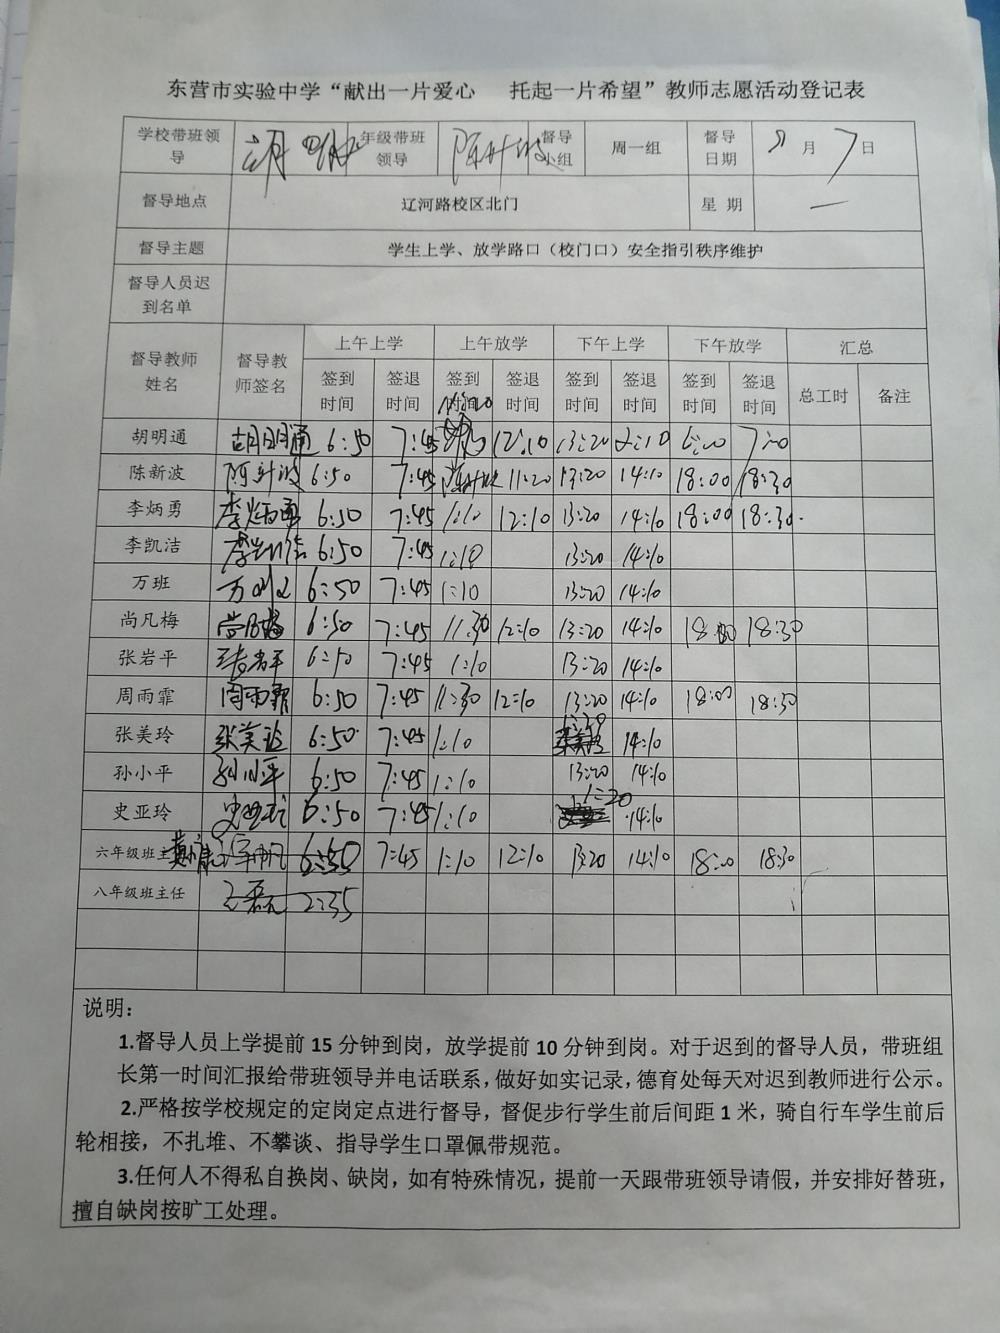 东营市实验中学“献出一片爱心 托起一片希望”教师志愿活动登记表
学校带班领导 年级带班领导 陈新波 督导小组 周一组 督导日期 月 7 日
督导地点 辽河路校区北门 星 期 一
督导主题 学生上学、放学路口（校门口）安全指引秩序维护
督导人员迟到名单
督导教师姓名 督导教师签名 上午上学 上午放学 下午上学 下午放学 汇总
签到时间 签退时间 签到时间 签退时间 签到时间 签退时间 签到时间 签退时间 总工时 备注
胡明通 胡明通 6:50 7:45 12:10 13:20 2:10 6:00 7:00
陈新波 陈新波 6:50 7:45 陈新波 11:20 13:20 14:10 18:00 18:30
李炳勇 李炳勇 6:50 7:45 1:10 12:10 13:20 14:10 18:00 18:30
李凯洁 李凯洁 6:50 7:45 1:10 13:20 14:10
万班 6:50 7:45 1:10 13:20 14:10
尚凡梅 尚凡梅 6:50 7:45 11:30 12:10 13:20 14:10 18:00 18:30
张岩平 张岩平 6:10 7:45 1:10 13:20 14:10
周雨霏 周雨霏 6:50 7:45 11:30 12:10 13:20 14:10 18:00 18:30
张美玲 张美玲 6:50 7:45 1:10 14:10
孙小平 孙小平 6:50 7:45 1:10 13:20 14:10
史亚玲 史亚玲 6:50 7:45 1:10 1:20 14:10
六年级班主 6:50 7:45 1:10 12:10 13:20 14:10 18:00 18:30
八年级班主任 王磊 2:35
说明：
1.督导人员上学提前 15 分钟到岗，放学提前 10 分钟到岗。对于迟到的督导人员，带班组
长第一时间汇报给带班领导并电话联系，做好如实记录，德育处每天对迟到教师进行公示。
2.严格按学校规定的定岗定点进行督导，督促步行学生前后间距 1 米，骑自行车学生前后
轮相接，不扎堆、不攀谈、指导学生口罩佩带规范。
3.任何人不得私自换岗、缺岗，如有特殊情况，提前一天跟带班领导请假，并安排好替班，
擅自缺岗按旷工处理。